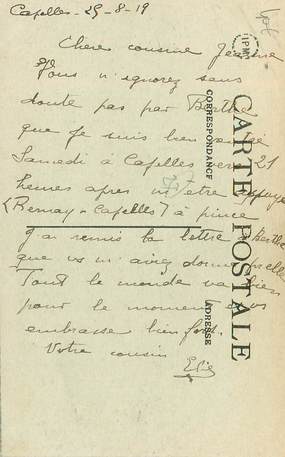 Capelles - 25-8-19
Chere cousine Jeanne
Vous n'ignorez sans
doute pas par Berthe
que je suis bien
Samedi à Capelles vers 21
heures apres m'etre
(Bernay - Capelles) à pince
J'ai remis la lettre à Berthe
que vs m'aviez donné
Tout le monde va bien
pour le moment vous
embrasse bien fort.
Votre cousin
CARTE POSTALE
CORRESPONDANCE
ADRESSE
IPM